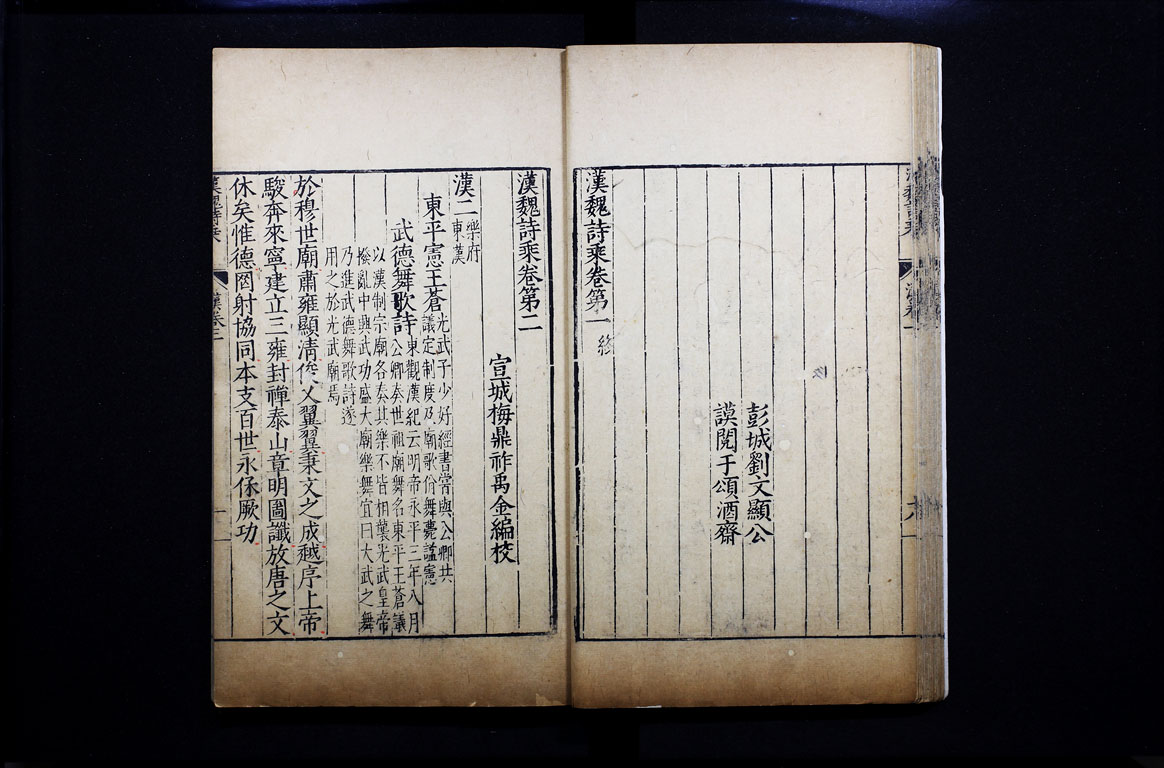 漢魏詩乘卷第一 終
彭城劉文顯公
謨閱于頌酒齋
漢魏詩乘卷第二
宣城梅鼎祚禹金編校
漢二
樂府
東漢
東平憲王蒼
光武子少好經書嘗與公卿共
議定制度及廟歌佾舞薨諡憲
武德舞歌詩
東觀漢紀云明帝永平三年八月
公卿奏世祖廟舞名東平王蒼議
以漢制宗廟各奏其樂不皆相襲光武皇帝
撥亂中興武功盛大廟樂舞宜曰大武之舞
乃進武德舞歌詩遂
用之於光武廟焉
於穆世廟肅雍顯清俊乂翼翼秉文之成越序上帝
駿奔來寧建立三雍封禪泰山章明圖讖放唐之文
休矣惟德罔射協同本支百世永保厥功
漢魏詩乘
漢卷二
二